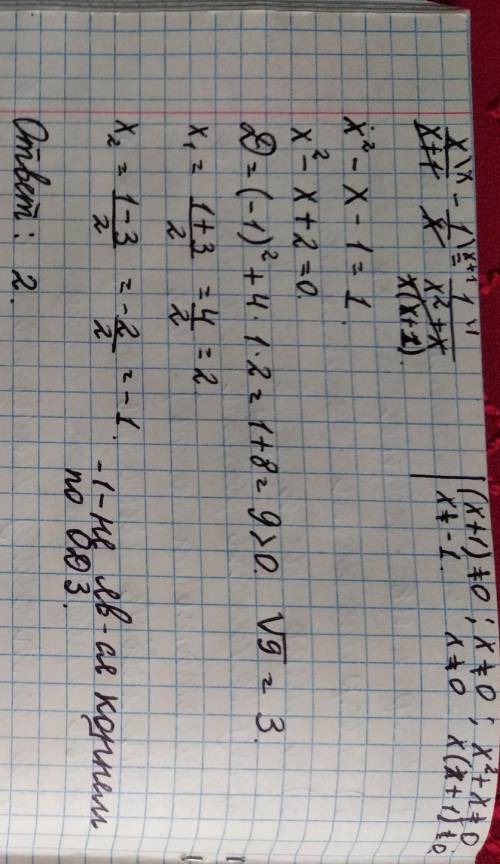 x\x/x+1 - 1\x+1/x = 1\1/x²+x | (x+1) ≠ 0 ; x ≠ 0 ; x²+x ≠ 0
x(x+1). x ≠ -1. x ≠ 0 x(x+1) ≠ 0
x² - x - 1 = 1.
x² - x + 2 = 0.
D = (-1)² + 4 · 1 · 2 = 1 + 8 = 9 > 0. √9 = 3.
x₁ = 1+3/2 = 4/2 = 2.
x₂ = 1-3/2 = -2/2 = -1. -1 - не яв-ся корнем
по ОДЗ.
Ответ: 2.